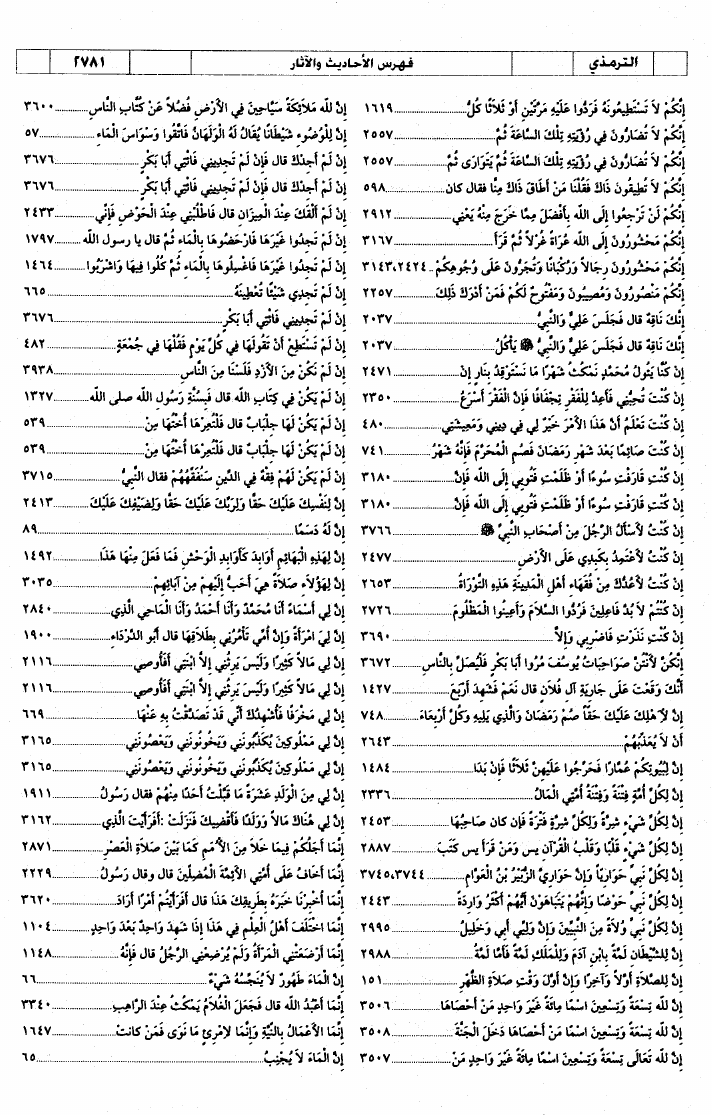 الترمذي فهرس الأحاديث والآثار ٢٧٨١
إِنَّكُمْ لاَ تَسْتَطِيعُونَهُ فَرَدُّوا عَلَيْهِ مَرَّتَيْنِ أَوْ ثَلاَثًا كُلُّ ............ ١٦١٩
إِنَّكُمْ لاَ تُضَارُّونَ فِي رُؤْيَتِهِ تِلْكَ السَّاعَةَ ثُمَّ ............ ٢٥٥٧
إِنَّكُمْ لاَ تُضَارُّونَ فِي رُؤْيَتِهِ تِلْكَ السَّاعَةَ ثُمَّ يَتَوَارَى ثُمَّ ............ ٢٥٥٧
إِنَّكُمْ لاَ تُطِيقُونَ ذَاكَ فَقُلْنَا مَنْ أَطَاقَ ذَاكَ مِنَّا فقال كان ............ ٥٩٨
إِنَّكُمْ لَنْ تَرْجِعُوا إِلَى الله بِأَفْضَلَ مِمَّا خَرَجَ مِنْهُ يَعْنِي ............ ٢٩١٢
إِنَّكُمْ مَحْشُورُونَ إِلَى الله عُرَاةً غُرْلاً ثُمَّ قَرَأَ ............ ٣١٦٧
إِنَّكُمْ مَحْشُورُونَ رِجَالاً وَرُكْبَانًا وَتُجَرُّونَ عَلَى وُجُوهِكُمْ .. ٣١٤٣،٢٤٢٤
إِنَّكُمْ مَنْصُورُونَ وَمُصِيبُونَ وَمَفْتُوحٌ لَكُمْ فَمَنْ أَدْرَكَ ذَلِكَ ............ ٢٢٥٧
إِنَّكَ نَاقِهٌ قال فَجَلَسَ عَلِيٌّ وَالنَّبِيُّ ............ ٢٠٣٧
إِنَّكَ نَاقِهٌ قال فَجَلَسَ عَلِيٌّ وَالنَّبِيُّ ﷺ يَأْكُلُ ............ ٢٠٣٧
إِنْ كُنَّا يَثُولُ مُحَمَّدٍ نَمْكُثُ شَهْرًا مَا نَسْتَوْقِدُ بِنَارٍ إِنْ ............ ٢٤٧١
إِنْ كُنْتَ تُحِبُّنِي فَأَعِدَّ لِلْفَقْرِ تِجْفَافًا فَإِنَّ الْفَقْرَ أَسْرَعُ ............ ٢٣٥٠
إِنْ كُنْتَ تَعْلَمُ أَنَّ هَذَا الأَمْرَ خَيْرٌ لِي فِي دِينِي وَمَعِيشَتِي ............ ٤٨٠
إِنْ كُنْتَ صَائِمًا بَعْدَ شَهْرِ رَمَضَانَ فَصُمِ الْمُحَرَّمَ فَإِنَّهُ شَهْرُ ............ ٧٤١
إِنْ كُنْتِ قَارَفْتِ سُوءًا أَوْ ظَلَمْتِ فَتُوبِي إِلَى الله فَإِنَّ ............ ٣١٨٠
إِنْ كُنْتِ قَارَفْتِ سُوءًا أَوْ ظَلَمْتِ فَتُوبِي إِلَى الله فَإِنَّ ............ ٣١٨٠
إِنْ كُنْتُ لأَسْأَلُ الرَّجُلَ مِنْ أَصْحَابِ النَّبِيِّ ﷺ ............ ٣٧٦٦
إِنْ كُنْتُ لأَعْتَمِدُ بِكَبِدِي عَلَى الأَرْضِ ............ ٢٤٧٧
إِنْ كُنْتُ لأَعُدُّكَ مِنْ فُقَهَاءِ أَهْلِ الْمَدِينَةِ هَذِهِ التَّوْرَاةُ ............ ٢٦٥٣
إِنْ كُنْتُمْ لاَ بُدَّ فَاعِلِينَ فَرُدُّوا السَّلاَمَ وَأَعِينُوا الْمَظْلُومَ ............ ٢٧٢٦
إِنْ كُنْتِ نَذَرْتِ فَاضْرِبِي وَإِلاَّ ............ ٣٦٩٠
إِنَّكُنَّ لأَنْتُنَّ صَوَاحِبَاتُ يُوسُفَ مُرُوا أَبَا بَكْرٍ فَلْيُصَلِّ بِالنَّاسِ ............ ٣٦٧٢
أَنَّكَ وَقَعْتَ عَلَى جَارِيَةِ آلِ فُلاَنٍ قال نَعَمْ فَشَهِدَ أَرْبَعَ ............ ١٤٢٧
إِنَّ لأَهْلِكَ عَلَيْكَ حَقًّا صُمْ رَمَضَانَ وَالَّذِي يَلِيهِ وَكُلَّ أَرْبِعَاءَ ............ ٧٤٨
أَنْ لاَ يُعَذِّبَهُمْ ............ ٢٦٤٣
إِنَّ لِبُيُوتِكُمْ عُمَّارًا فَحَرِّجُوا عَلَيْهِنَّ ثَلاَثًا فَإِنْ بَدَا ............ ١٤٨٤
إِنَّ لِكُلِّ أُمَّةٍ فِتْنَةً وَفِتْنَةُ أُمَّتِي الْمَالُ ............ ٢٣٣٦
إِنَّ لِكُلِّ شَيْءٍ شِرَّةً وَلِكُلِّ شِرَّةٍ فَتْرَةً فَإِن كان صَاحِبُهَا ............ ٢٤٥٣
إِنَّ لِكُلِّ شَيْءٍ قَلْبًا وَقَلْبُ الْقُرْآنِ يس وَمَنْ قَرَأَ يس كَتَبَ ............ ٢٨٨٧
إِنَّ لِكُلِّ نَبِيٍّ حَوَارِيًّا وَإِنَّ حَوَارِيَّ الزُّبَيْرُ بْنُ الْعَوَّامِ ............ ٣٧٤٥،٣٧٤٤
إِنَّ لِكُلِّ نَبِيٍّ حَوْضًا وَإِنَّهُمْ يَتَبَاهَوْنَ أَيُّهُمْ أَكْثَرُ وَارِدَةً ............ ٢٤٤٣
إِنَّ لِكُلِّ نَبِيٍّ وُلاَةً مِنَ النَّبِيِّينَ وَإِنَّ وَلِيِّي أَبِي وَخَلِيلُ ............ ٢٩٩٥
إِنَّ لِلشَّيْطَانِ لَمَّةً بِابْنِ آدَمَ وَلِلْمَلَكِ لَمَّةً فَأَمَّا لَمَّةُ ............ ٢٩٨٨
إِنَّ لِلصَّلاَةِ أَوَّلاً وَآخِرًا وَإِنَّ أَوَّلَ وَقْتِ صَلاَةِ الظُّهْرِ ............ ١٥١
إِنَّ لله تِسْعَةً وَتِسْعِينَ اسْمًا مِائَةً غَيْرَ وَاحِدٍ مَنْ أَحْصَاهَا ............ ٣٥٠٦
إِنَّ لله تِسْعَةً وَتِسْعِينَ اسْمًا مَنْ أَحْصَاهَا دَخَلَ الْجَنَّةَ ............ ٣٥٠٨
إِنَّ لله تَعَالَى تِسْعَةً وَتِسْعِينَ اسْمًا مِائَةً غَيْرَ وَاحِدٍ مَنْ ............ ٣٥٠٧
إِنَّ لله مَلاَئِكَةً سَيَّاحِينَ فِي الأَرْضِ فُضُلاً عَنْ كُتَّابِ النَّاسِ ............ ٣٦٠٠
إِنَّ لِلْوُضُوءِ شَيْطَانًا يُقَالُ لَهُ الْوَلَهَانُ فَاتَّقُوا وَسْوَاسَ الْمَاءِ ............ ٥٧
إِنْ لَمْ أَجِدْكَ قال فَإِنْ لَمْ تَجِدِينِي فَائْتِي أَبَا بَكْرٍ ............ ٣٦٧٦
إِنْ لَمْ أَجِدْكَ قال فَإِنْ لَمْ تَجِدِينِي فَائْتِي أَبَا بَكْرٍ ............ ٣٦٧٦
إِنْ لَمْ أَلْقَكَ عِنْدَ الْمِيزَانِ قال فَاطْلُبْنِي عِنْدَ الْحَوْضِ فَإِنِّي ............ ٢٤٣٣
إِنْ لَمْ تَجِدُوا غَيْرَهَا فَارْحَضُوهَا بِالْمَاءِ ثُمَّ قال يا رسول الله ............ ١٧٩٧
إِنْ لَمْ تَجِدُوا غَيْرَهَا فَاغْسِلُوهَا بِالْمَاءِ ثُمَّ كُلُوا فِيهَا وَاشْرَبُوا ............ ١٤٦٤
إِنْ لَمْ تَجِدِي شَيْئًا تُعْطِينَهُ ............ ٦٦٥
إِنْ لَمْ تَجِدِينِي فَائْتِي أَبَا بَكْرٍ ............ ٣٦٧٦
إِنْ لَمْ تَسْتَطِعْ أَنْ تَقُولَهَا فِي كُلِّ يَوْمٍ فَقُلْهَا فِي جُمُعَةٍ ............ ٤٨٢
إِنْ لَمْ نَكُنْ مِنَ الأَزْدِ فَلَسْنَا مِنَ النَّاسِ ............ ٣٩٣٨
إِنْ لَمْ يَكُنْ فِي كِتَابِ الله قال فَبِسُنَّةِ رَسُولِ الله صلى الله ............ ١٣٢٧
إِنْ لَمْ يَكُنْ لَهَا جِلْبَابٌ قال فَلْتُعِرْهَا أُخْتُهَا مِنْ ............ ٥٣٩
إِنْ لَمْ يَكُنْ لَهَا جِلْبَابٌ قال فَلْتُعِرْهَا أُخْتُهَا مِنْ ............ ٥٣٩
إِنْ لَمْ يَكُنْ لَهُمْ فِقْهٌ فِي الدِّينِ سَنُفَقِّهُهُمْ فقال النَّبِيُّ ............ ٣٧١٥
إِنَّ لِنَفْسِكَ عَلَيْكَ حَقًّا وَلِرَبِّكَ عَلَيْكَ حَقًّا وَلِضَيْفِكَ عَلَيْكَ ............ ٢٤١٣
إِنَّ لَهُ دَسَمًا ............ ٨٩
إِنَّ لِهَذِهِ الْبَهَائِمِ أَوَابِدَ كَأَوَابِدِ الْوَحْشِ فَمَا فَعَلَ مِنْهَا هَذَا ............ ١٤٩٢
إِنَّ لِهَؤُلاَءِ صَلاَةً هِيَ أَحَبُّ إِلَيْهِمْ مِنْ آبَائِهِمْ ............ ٣٠٣٥
إِنَّ لِي أَسْمَاءً أَنَا مُحَمَّدٌ وَأَنَا أَحْمَدُ وَأَنَا الْمَاحِي الَّذِي ............ ٢٨٤٠
إِنَّ لِيَ امْرَأَةً وَإِنَّ أُمِّي تَأْمُرُنِي بِطَلاَقِهَا قال أَبُو الدَّرْدَاءِ ............ ١٩٠٠
إِنَّ لِي مَالاً كَثِيرًا وَلَيْسَ يَرِثُنِي إِلاَّ ابْنَتِي أَفَأُوصِي ............ ٢١١٦
إِنَّ لِي مَالاً كَثِيرًا وَلَيْسَ يَرِثُنِي إِلاَّ ابْنَتِي أَفَأُوصِي ............ ٢١١٦
إِنَّ لِي مَخْرَفًا فَأُشْهِدُكَ أَنِّي قَدْ تَصَدَّقْتُ بِهِ عَنْهَا ............ ٦٦٩
إِنَّ لِي مَمْلُوكَيْنِ يُكَذِّبُونَنِي وَيَخُونُونَنِي وَيَعْصُونَنِي ............ ٣١٦٥
إِنَّ لِي مَمْلُوكَيْنِ يُكَذِّبُونَنِي وَيَخُونُونَنِي وَيَعْصُونَنِي ............ ٣١٦٥
إِنَّ لِي مِنَ الْوَلَدِ عَشَرَةً مَا قَبَّلْتُ أَحَدًا مِنْهُمْ فقال رَسُولُ ............ ١٩١١
إِنَّ لِي هُنَاكَ مَالاً وَوَلَدًا فَأَقْضِيكَ فَنَزَلَتْ :أَفَرَأَيْتَ الَّذِي ............ ٣١٦٢
إِنَّمَا أَجَلُكُمْ فِيمَا خَلاَ مِنَ الأُمَمِ كَمَا بَيْنَ صَلاَةِ الْعَصْرِ ............ ٢٨٧١
إِنَّمَا أَخَافُ عَلَى أُمَّتِي الأَئِمَّةَ الْمُضِلِّينَ قال وقال رَسُولُ ............ ٢٢٢٩
إِنَّمَا أُخْبِرْنَا خَبَرَهُ بِطَرِيقِكَ هَذَا قال أَفَرَأَيْتُمْ أَمْرًا أَرَادَ ............ ٣٦٢٠
إِنَّمَا اخْتَلَفَ أَهْلُ الْعِلْمِ فِي هَذَا إِذَا شَهِدَ وَاحِدٌ بَعْدَ وَاحِدٍ ............ ١١٠٤
إِنَّمَا أَرْضَعَتْنِي الْمَرْأَةُ وَلَمْ يُرْضِعْنِي الرَّجُلُ قال فَإِنَّهُ ............ ١١٤٨
إِنَّ الْمَاءَ طَهُورٌ لاَ يُنَجِّسُهُ شَيْءٌ ............ ٦٦
إِنَّمَا أَعْبُدُ الله قال فَجَعَلَ الْغُلاَمُ يَمْكُثُ عِنْدَ الرَّاهِبِ ............ ٣٣٤٠
إِنَّمَا الأَعْمَالُ بِالنِّيَّةِ وَإِنَّمَا لاِمْرِئٍ مَا نَوَى فَمَنْ كانت ............ ١٦٤٧
إِنَّ الْمَاءَ لاَ يُجْنِبُ ............ ٦٥